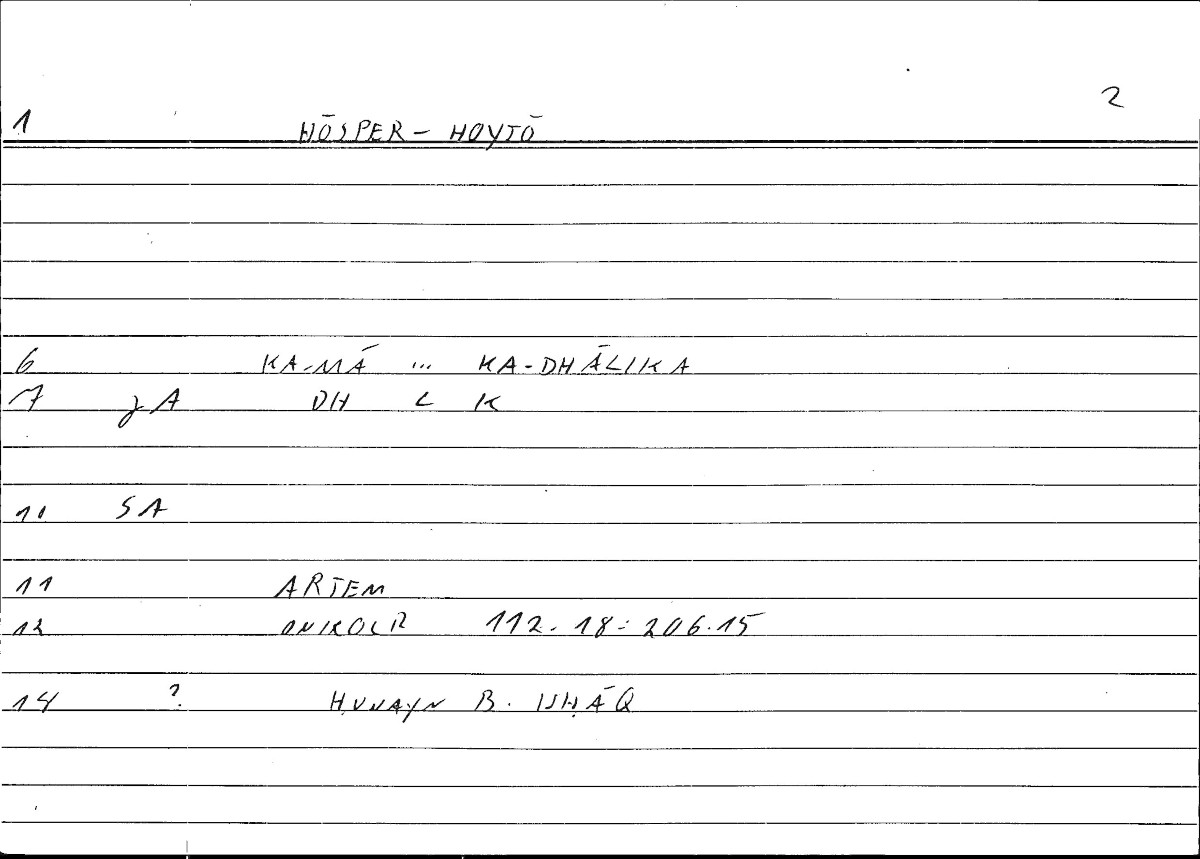 2
1 HŌSPER – HOYTŌ
6 KA-MĀ ... KA-DHĀLIKA
7 JA DH L K
10 SA
11 ARTEM
12 ONIKOCR 112.18 : 206.15
14 ? ḤUNAYN B. ISḤĀQ